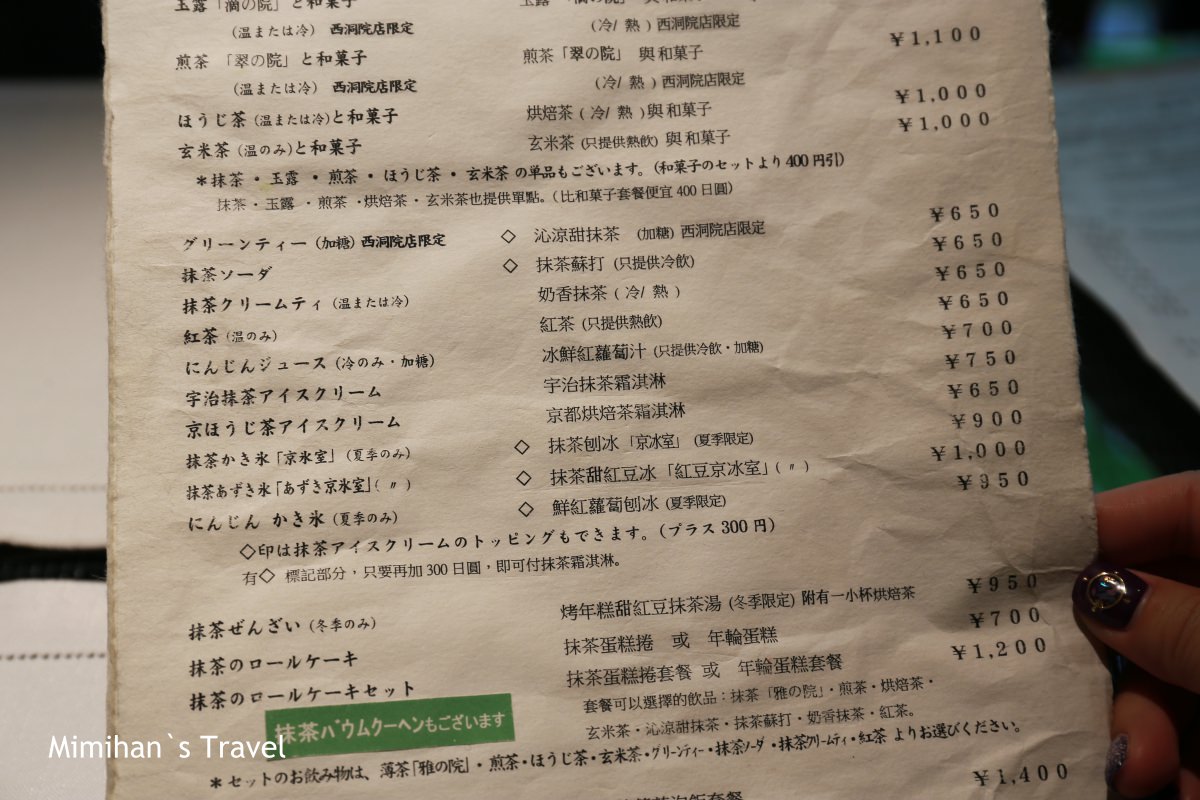 玉露「滴の院」と和菓子 玉露「滴の院」與和菓子
(温または冷) 西洞院店限定 (冷/ 熱 ) 西洞院店限定
煎茶 「翠の院」と和菓子 煎茶「翠の院」 與 和菓子 ￥1,100
(温または冷) 西洞院店限定 (冷/ 熱 ) 西洞院店限定
ほうじ茶 (温または冷)と和菓子 烘焙茶 ( 冷/ 熱 ) 與 和菓子 ￥1,000
玄米茶 (温のみ)と和菓子 玄米茶 (只提供熱飲) 與 和菓子 ￥1,000
＊抹茶 ・ 玉露 ・ 煎茶・ ほうじ茶 ・ 玄米茶 の単品もございます。(和菓子のセットより 400 円引)
抹茶・玉露 ・煎茶 ・烘焙茶・ 玄米茶也提供單點。(比和菓子套餐便宜 400 日圓)
グリーンティー (加糖) 西洞院店限定 ◇ 沁涼甜抹茶 (加糖) 西洞院店限定 ￥650
抹茶ソーダ ◇ 抹茶蘇打 (只提供冷飲) ￥650
抹茶クリームティ (温または冷) 奶香抹茶 ( 冷/ 熱 ) ￥650
紅茶 (温のみ) 紅茶 (只提供熱飲) ￥650
にんじんジュース (冷のみ・加糖) 冰鮮紅蘿蔔汁 (只提供冷飲・加糖) ￥700
宇治抹茶アイスクリーム 宇治抹茶霜淇淋 ￥750
京ほうじ茶アイスクリーム 京都烘焙茶霜淇淋 ￥650
抹茶かき氷「京氷室」 (夏季のみ) ◇ 抹茶刨冰「京冰室」 (夏季限定) ￥900
抹茶あずき氷「あずき京氷室」( 〃 ) ◇ 抹茶甜紅豆冰「紅豆京冰室」( 〃 ) ￥1,000
にんじん かき氷 (夏季のみ) ◇ 鮮紅蘿蔔刨冰 (夏季限定) ￥950
◇印は抹茶アイスクリームのトッピングもできます。(プラス 300 円)
有◇ 標記部分，只要再加 300 日圓，即可付抹茶霜淇淋。
抹茶ぜんざい (冬季のみ) 烤年糕甜紅豆抹茶湯 (冬季限定) 附有一小杯烘焙茶 ￥950
抹茶のロールケーキ 抹茶蛋糕捲 或 年輪蛋糕 ￥700
抹茶のロールケーキセット 抹茶蛋糕捲套餐 或 年輪蛋糕套餐 ￥1,200
抹茶バウムクーヘンもございます
套餐可以選擇的飲品：抹茶「雅の院」・煎茶・烘焙茶・
玄米茶・沁涼甜抹茶・抹茶蘇打・奶香抹茶・紅茶。
＊セットのお飲み物は、薄茶「雅の院」・煎茶・ほうじ茶・玄米茶・グリーンティー・抹茶ソーダ・抹茶クリームティ・紅茶 よりお選びください。
￥1,400
Mimihan`s Travel